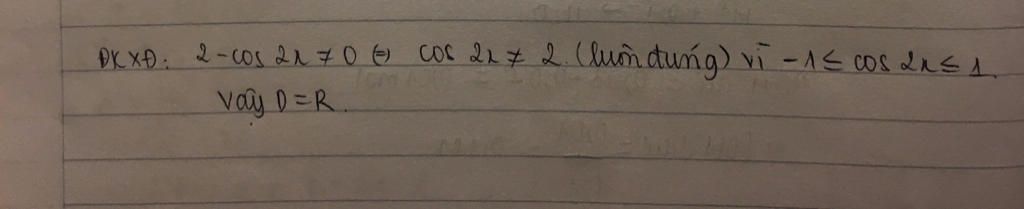 ĐKXĐ: 2-cos 2x ≠ 0 ⇔ cos 2x ≠ 2. (luôn đúng) vì -1 ≤ cos 2x ≤ 1.
Vậy D = R.